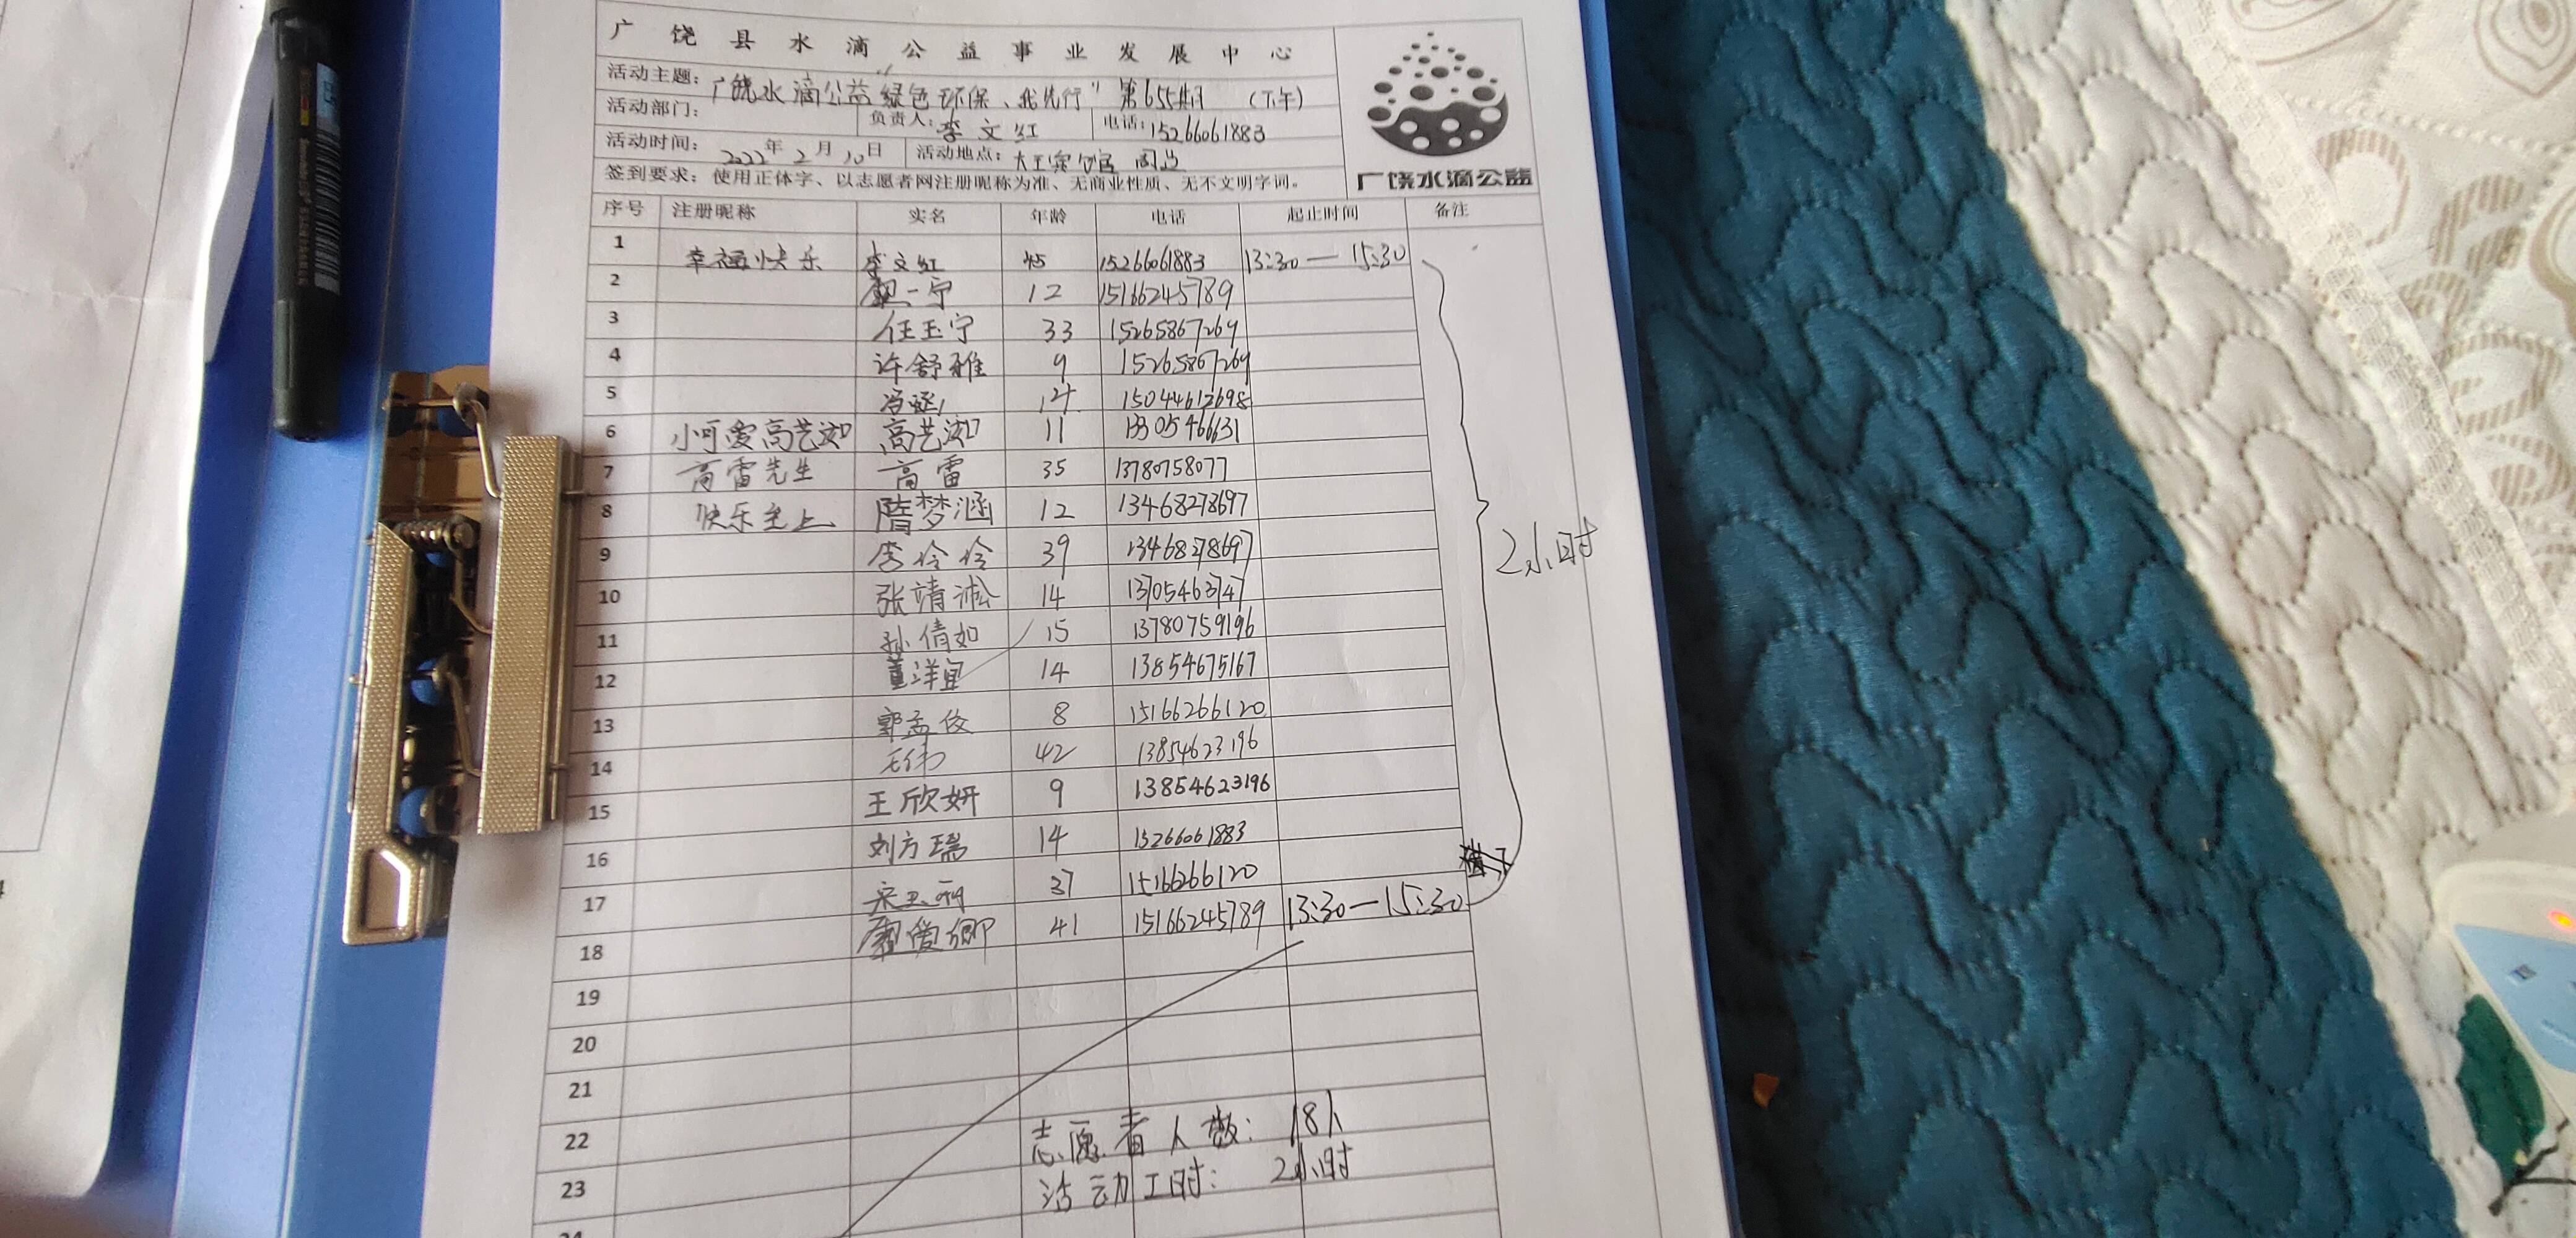 广饶县水滴公益事业发展中心
活动主题：广饶水滴公益"绿色环保、我先行"第655期（下午）
活动部门： 负责人：李文红 电话：15266061883
活动时间：2022年2月10日 活动地点：大王宾馆周边
签到要求：使用正体字、以志愿者网注册昵称为准、无商业性质、无不文明字词。
广饶水滴公益
序号 注册昵称 实名 年龄 电话 起止时间 备注
1 幸福快乐 李文红 45 15266061883 13:30—15:30
2 一宁 12 15166245789
3 任玉宁 33 15265867269
4 许舒雅 9 15265867269
5 冯 14 15044612698
6 小可爱高艺洳 高艺洳 11 13305466631
7 高雷先生 高雷 35 13780758077
8 快乐至上 隋梦涵 12 13468278697
9 李伶伶 39 13468278697
10 张靖淞 14 13705463747
11 孙倩如 15 13780759196
12 董洋宜 14 13854675167
13 郭孟俊 8 15166266120
14 王伟 42 13854623196
15 王欣妍 9 13854623196
16 刘方瑞 14 15266061883
17 宋玉丽 37 15166266120
18 爱卿 41 15166245789 13:30—15:30
2小时
19
20
21
22 志愿者人数：18人
23 活动工时：2小时
24